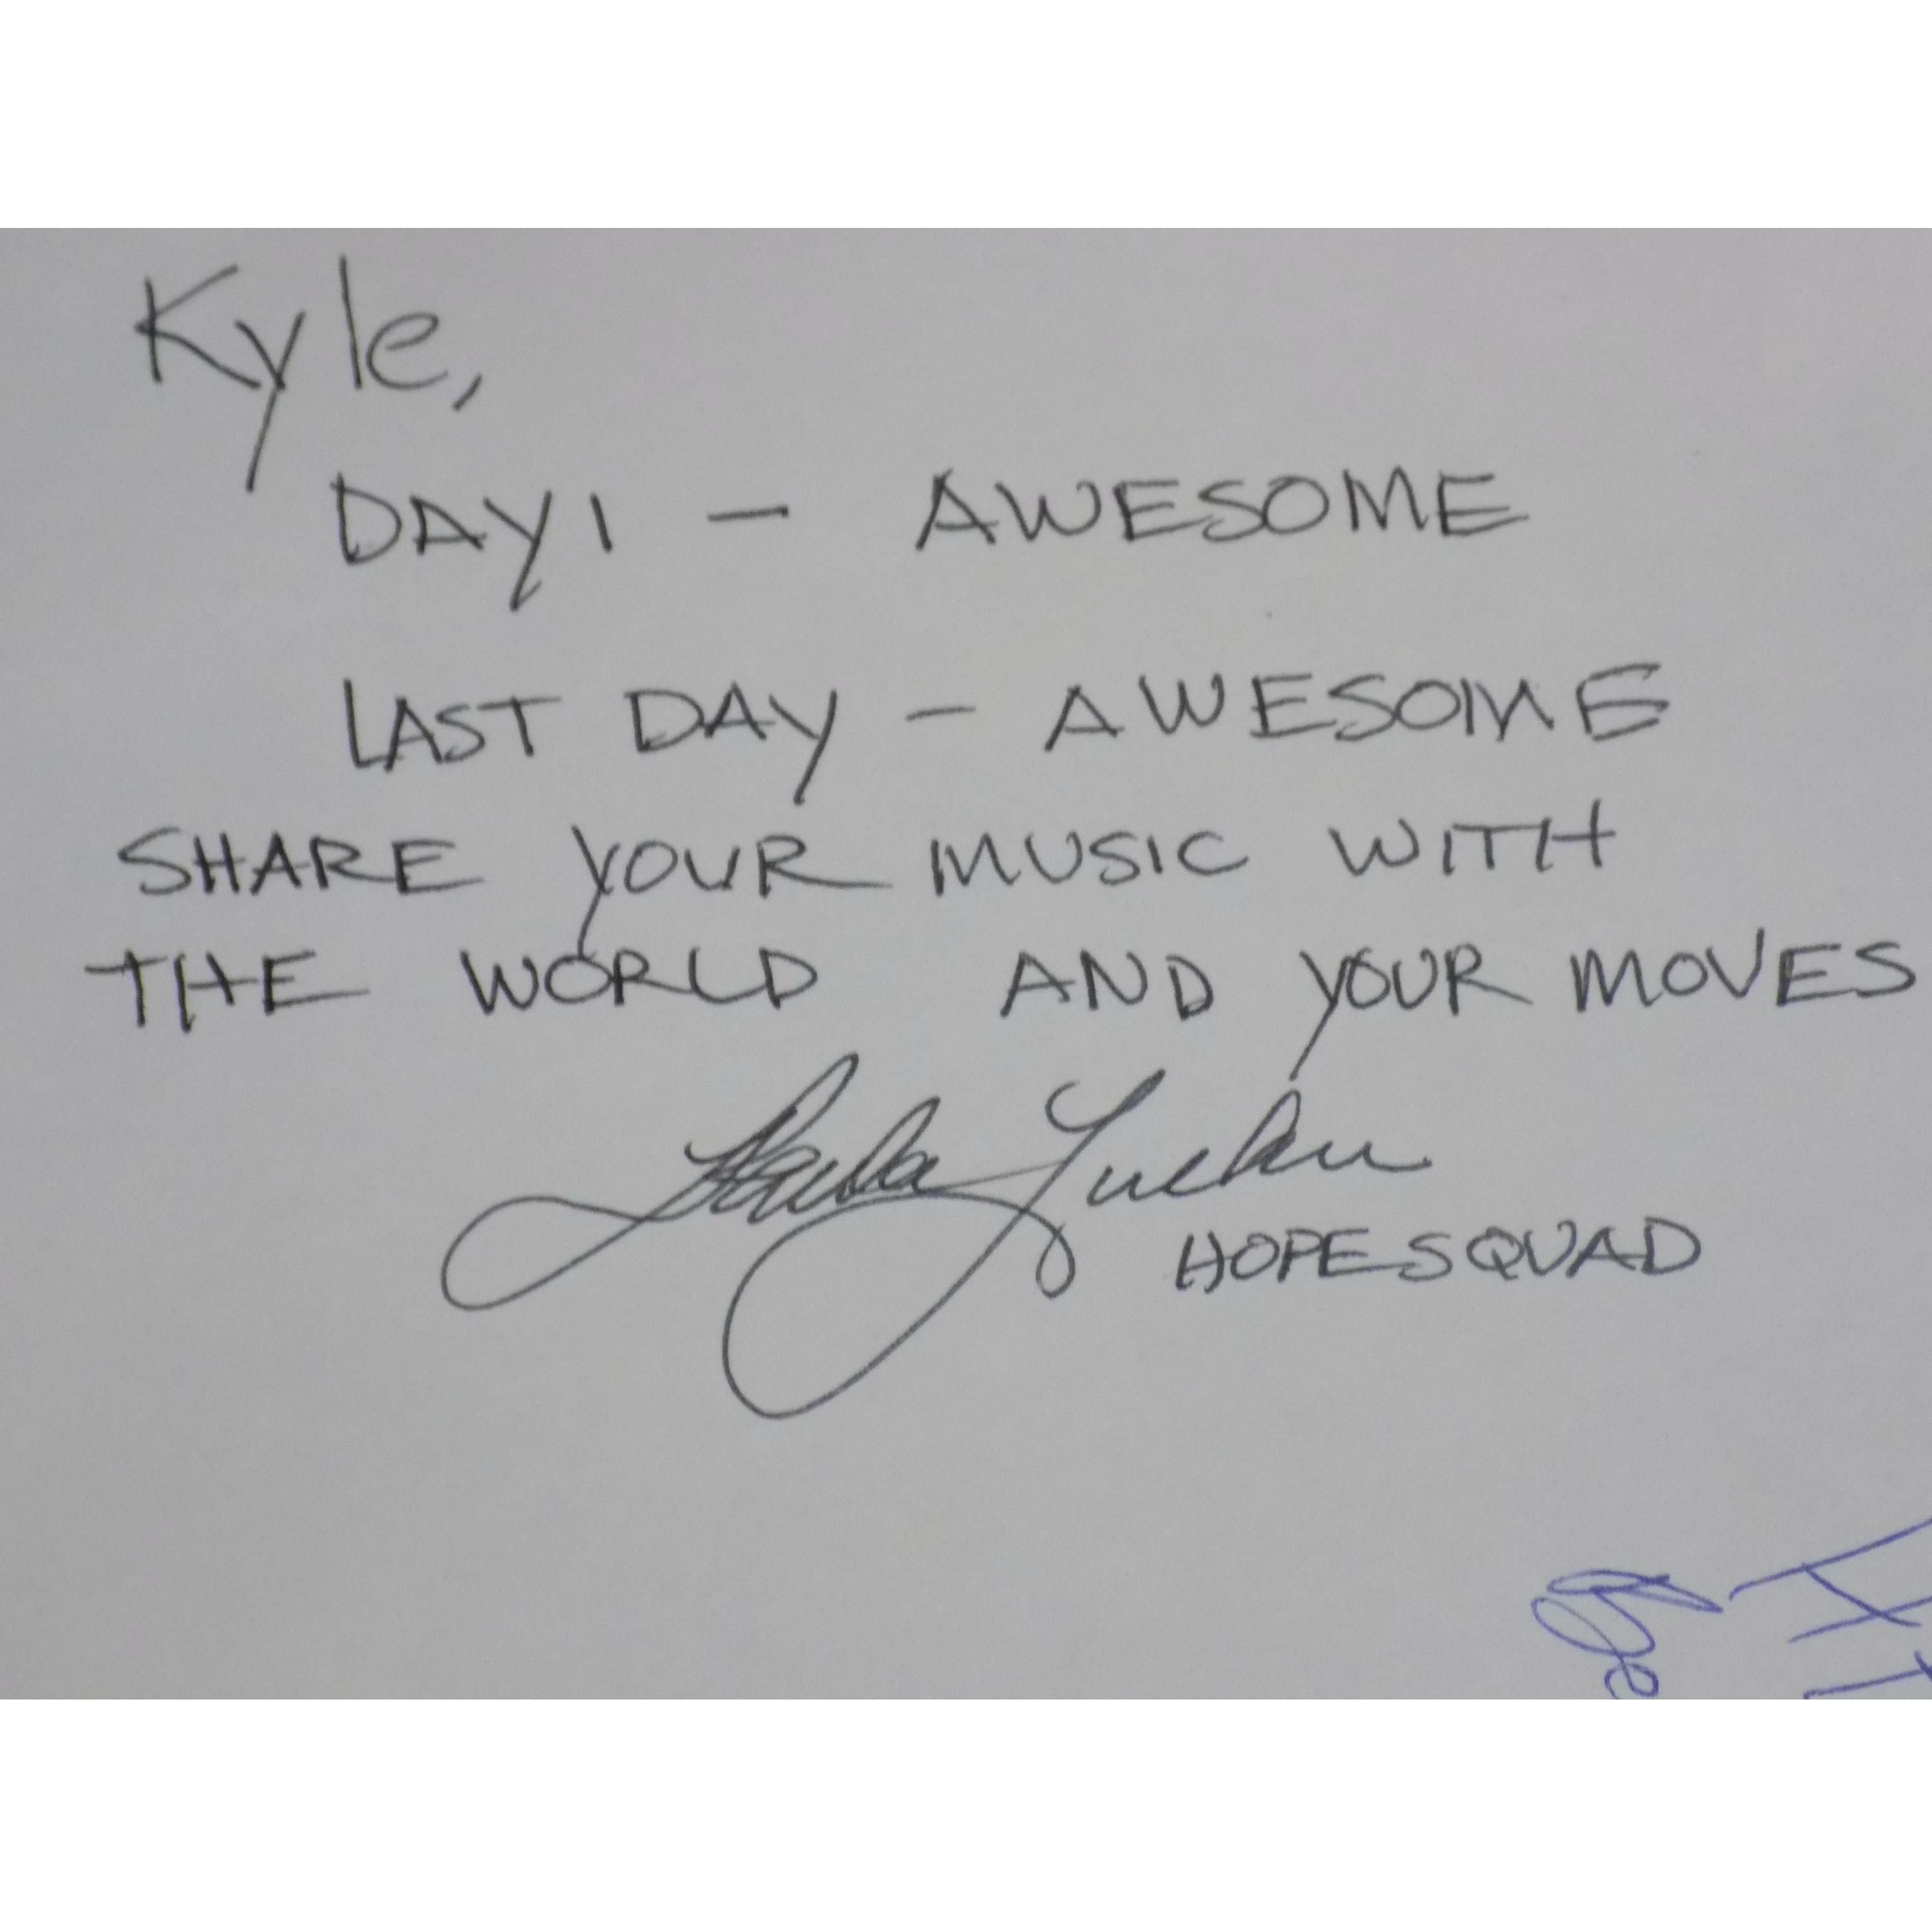 Kyle,
DAY 1 - AWESOME
LAST DAY - AWESOME
SHARE YOUR MUSIC WITH
THE WORLD AND YOUR MOVES
HOPE SQUAD